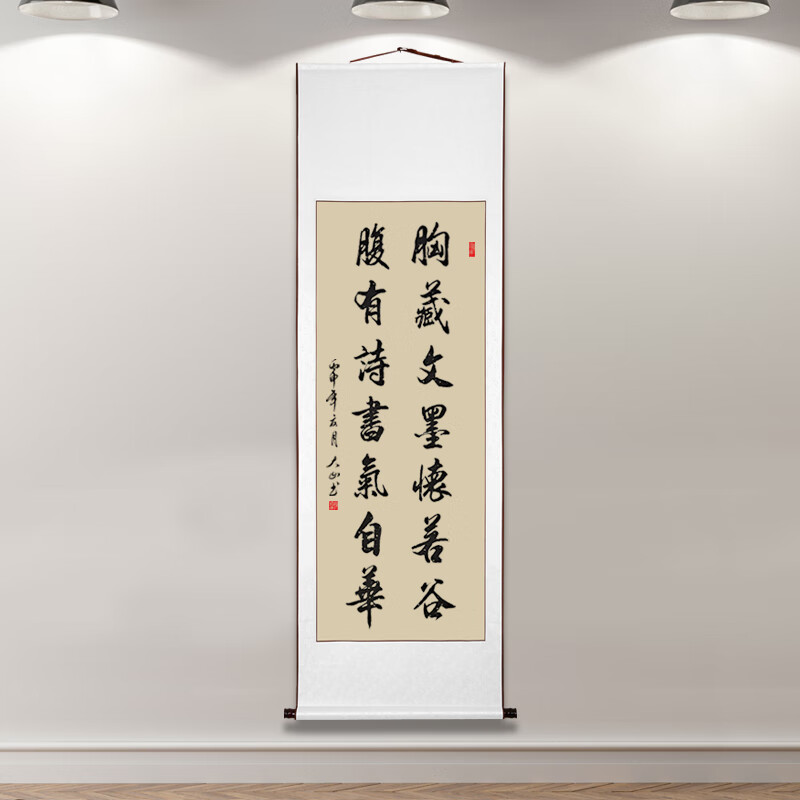 胸藏文墨懷若谷
腹有詩書氣自華
丙申年亥月大山书